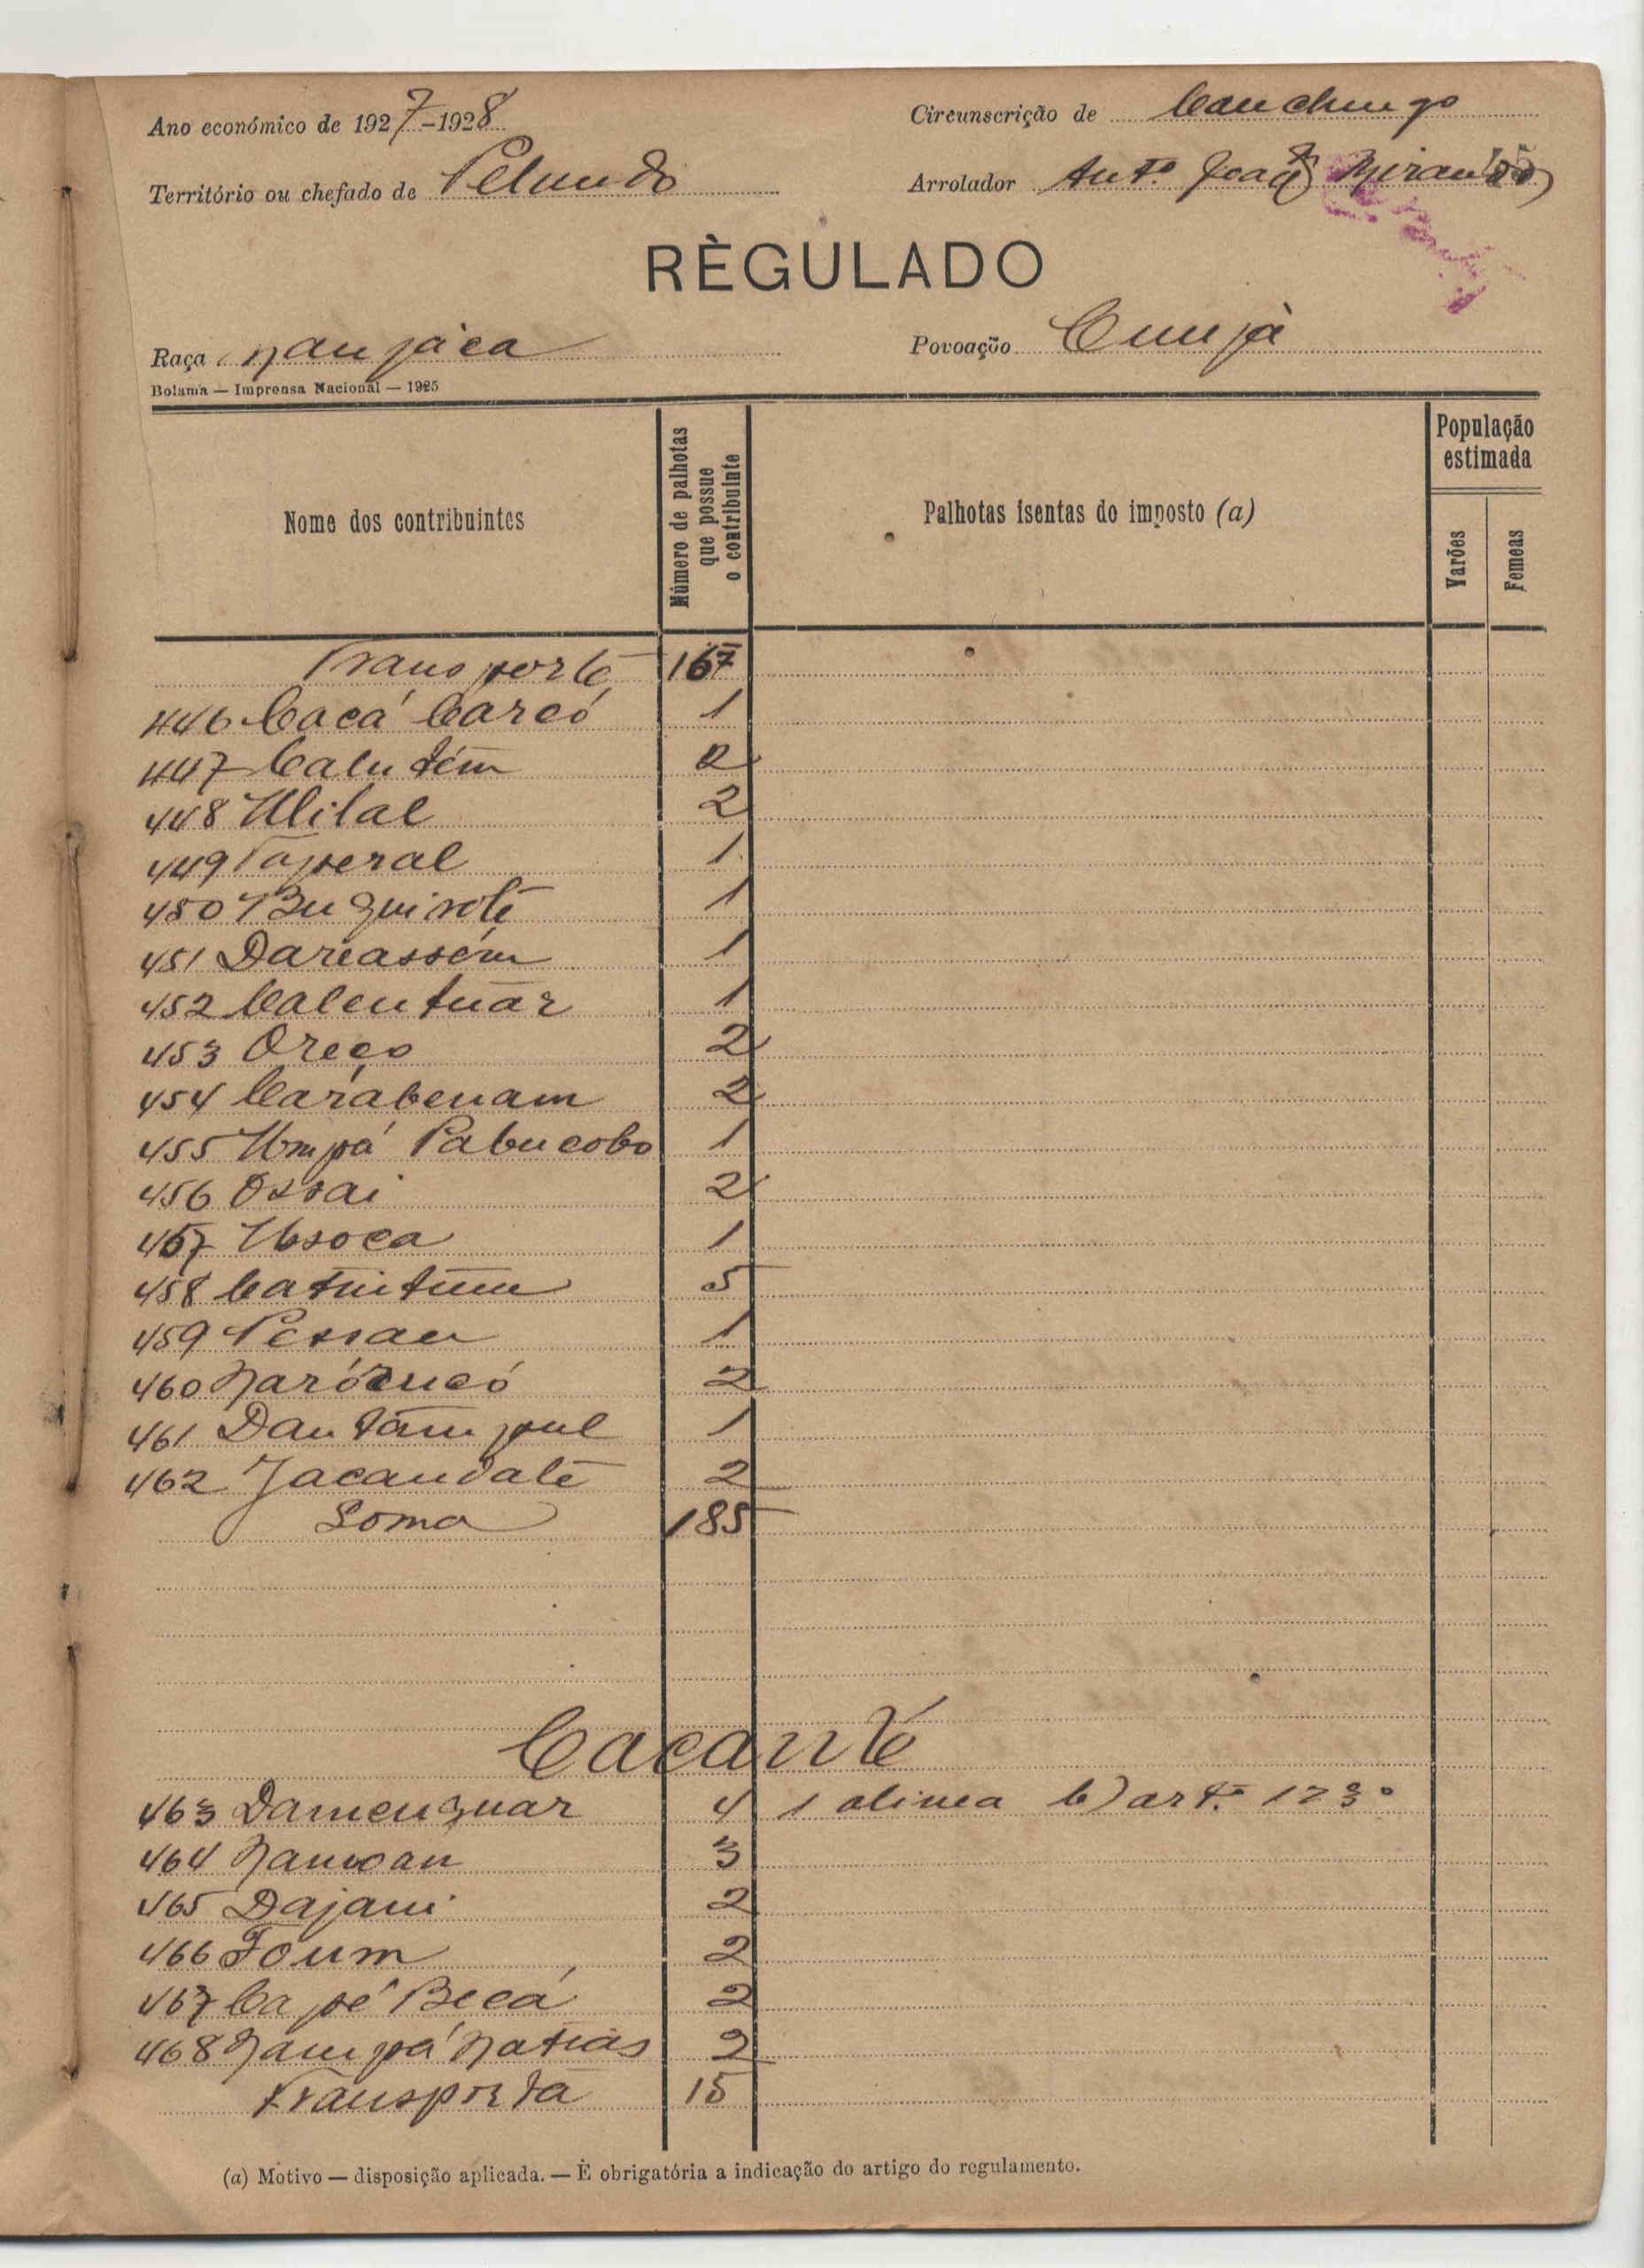 Ano económico de 1927-1928
Circunscrição de Canchungo
Território ou chefado de Pelundo
Arrolador Antº João Miranda
RÈGULADO
Raça Manjáca
Povoação Cunjà
Bolama — Imprensa Nacional — 1925
Nome dos contribuintes
Número de palhotas que possue o contribuinte
Palhotas isentas do imposto (a)
População estimada
Varões
Femeas
Transporte 167
446 Cacá Carcó 1
447 Calutém 2
448 Ulilal 2
449 Taperal 1
450 Buguirolé 1
451 Dareassém 1
452 Calentuar 1
453 Oreço 2
454 Carabenam 2
455 Umpá Pabucobo 1
456 Ossai 2
457 Ussoca 1
458 5
459 Pessau 1
460 2
461 Dantampul 1
462 Jacandaté 2
Soma 185
Cacanté
463 Damenguar 4 1 alinea b) artº 123º
464 3
465 Dajami 2
466 Foum 2
467 Capé Becá 2
468 Nampá Natias 2
Transporta 15
(a) Motivo — disposição aplicada. — È obrigatória a indicação do artigo do regulamento.